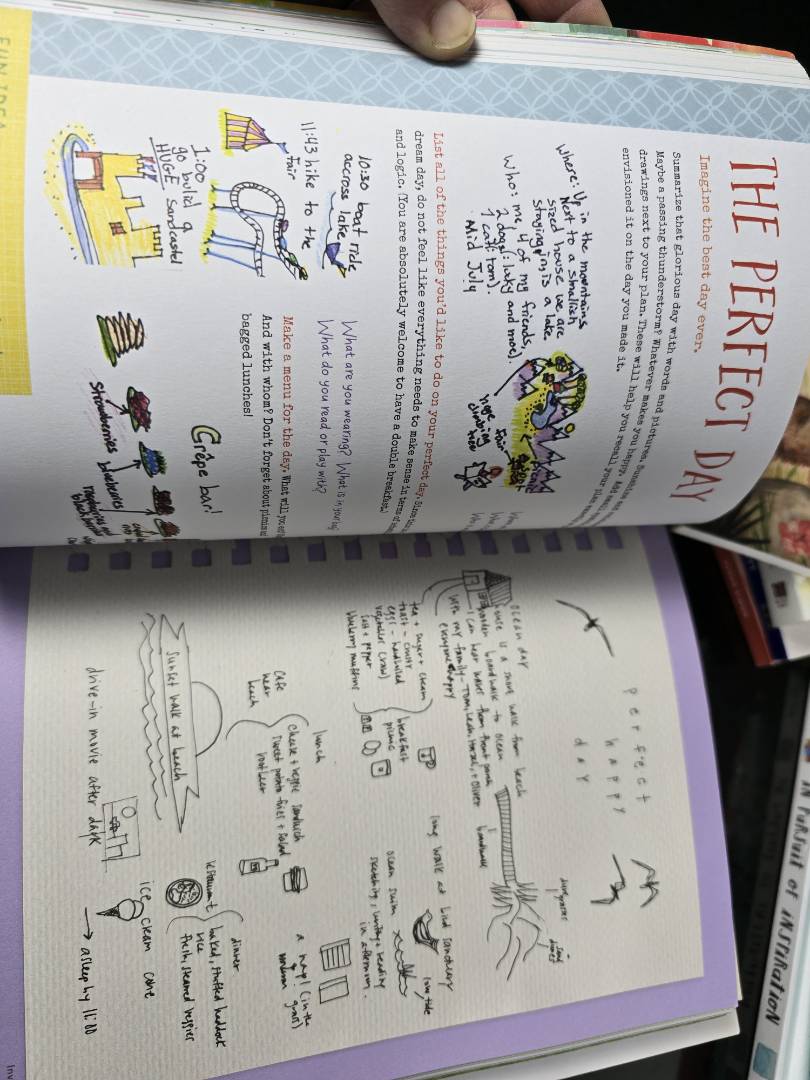 THE PERFECT DAY
Imagine the best day ever.
Summarize that glorious day with words and pictures. Sunshine
Maybe a passing thunderstorm? Whatever makes you happy. Add
drawings next to your plan. These will help you recall your
envisioned it on the day you made it.
Where: Up in the mountains
Next to a smallish
sized house we are
staying in is a lake
Who: me, 4 of my friends,
2 dogs (luky and moe).
1 cat (tom).
Mid July
huge
climbing
tree
fair
List all of the things you'd like to do on your perfect day. Since this is a
dream day, do not feel like everything needs to make sense in terms of
and logic. (You are absolutely welcome to have a double breakfast.)
10:30 boat ride
across lake
11:43 hike to the
fair
1:00
go bulid a
HUGE sandcastel
What are you wearing? What is in your bag
What do you read or play with?
Make a menu for the day. What will you eat
And with whom? Don't forget about picnics
bagged lunches!
Crêpe bar!
Strawberries
blueberries
FUN IDEA
perfect
happy
day
ocean day
house is a short walk from beach
wooden boardwalk to ocean
I can hear waves from front porch
with my family - Tom, Leah, Hazel, + Oliver
everyone happy
boardwalk
dune grasses
sand
dunes
tea + sugar + cream
toast -
eggs - hardboiled
vegetables (raw)
salt + pepper
blueberry muffins
breakfast
picnic
long walk at bird sanctuary
low tide
ocean swim
sketching, writing + reading
in afternoon.
lunch
cafe
near
beach
cheese + veggie sandwich
sweet potato fries + salad
root beer
a nap! (in the
grass)
sunset walk at beach
restaurant
dinner
baked, stuffed haddock
rice
fresh, steamed veggies
drive-in movie after dark
ice cream cone
→ asleep by 11:00
IN PURSUIT OF INSPIRATION
Inv